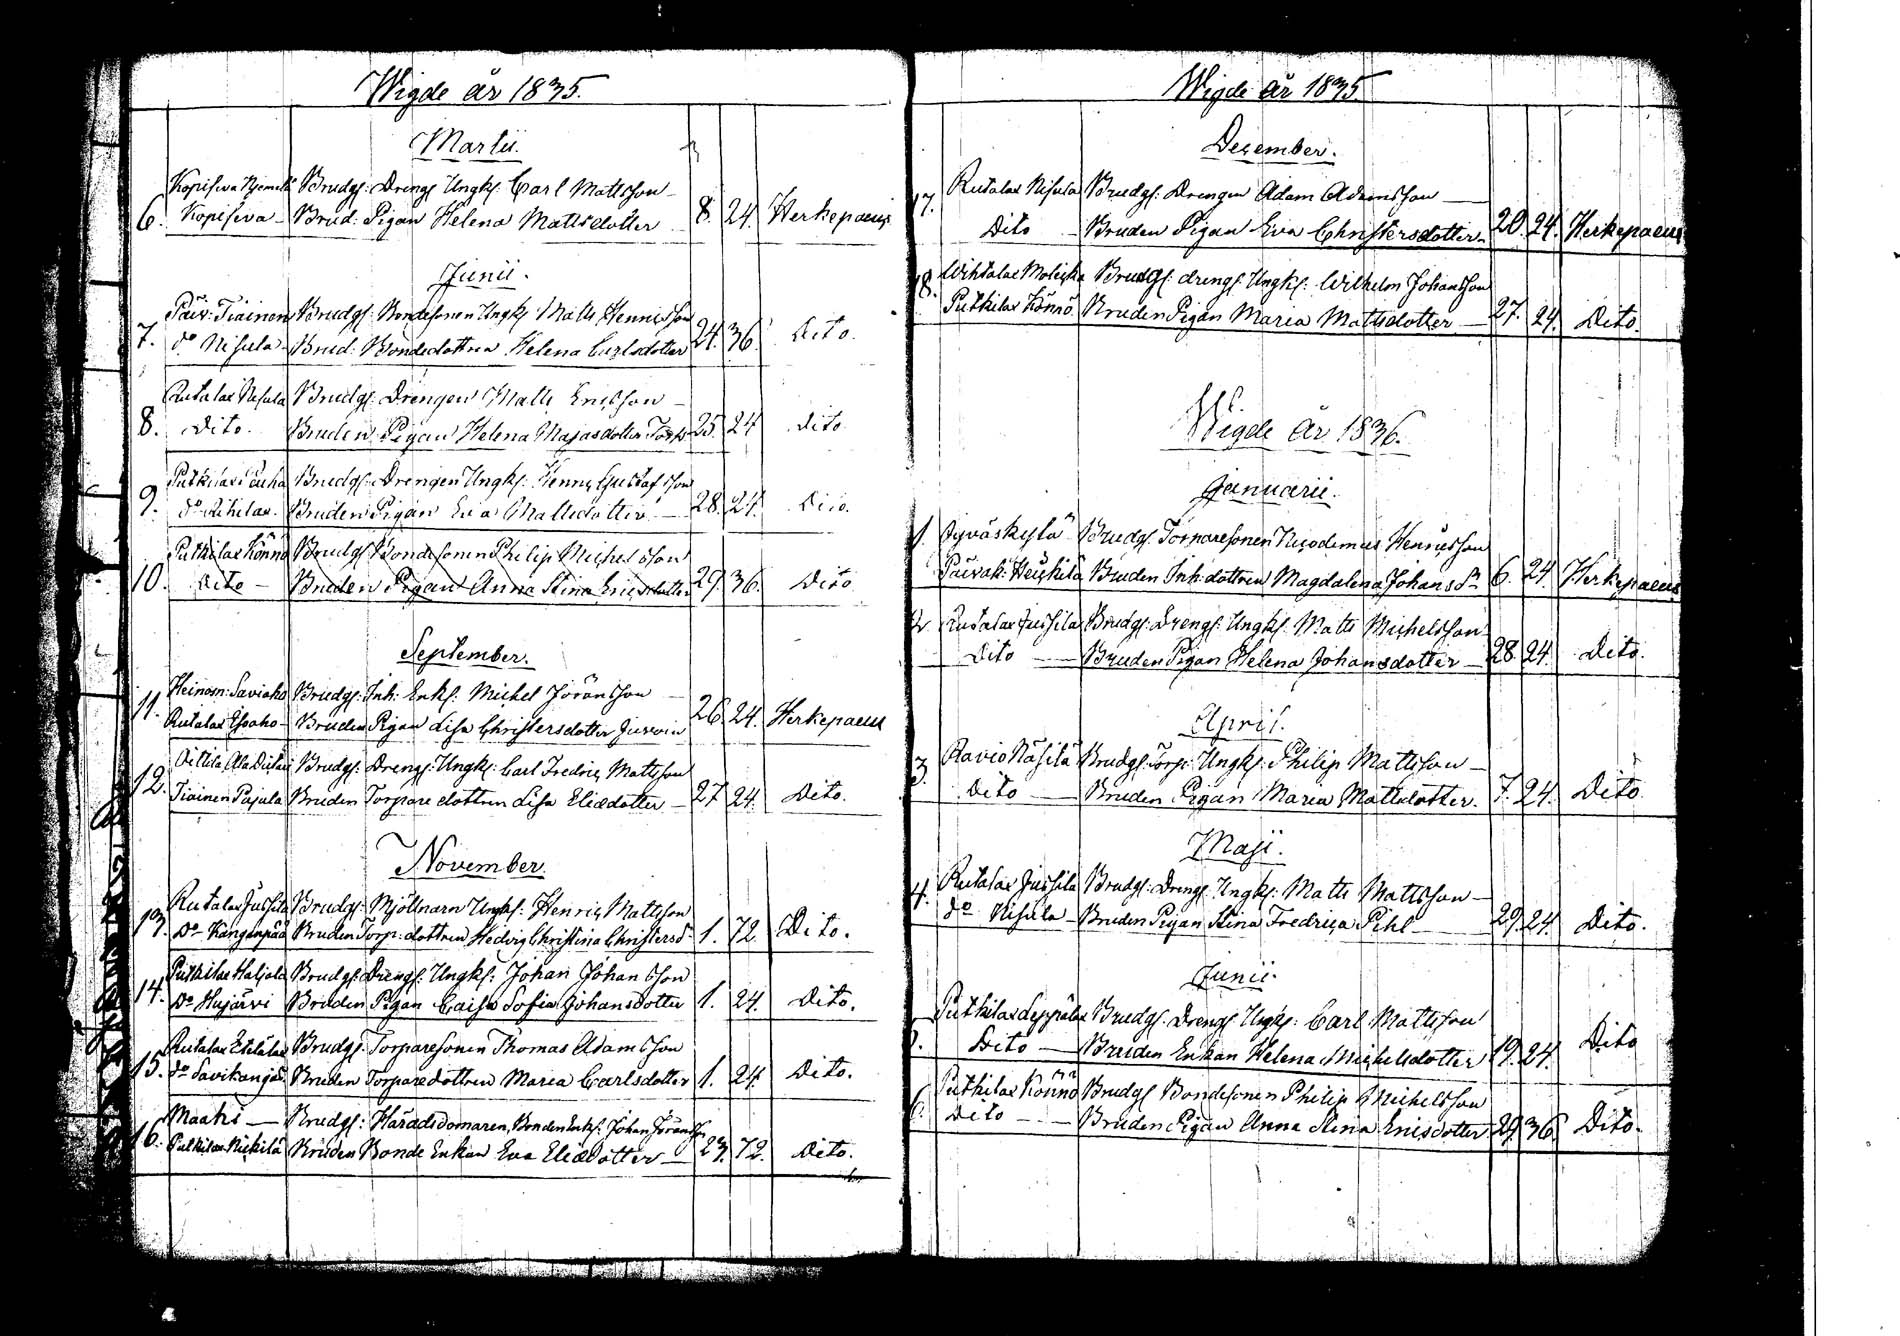 Wigde år 1835.
Martii.
6. Kopisiva Niemelä Brudg: Dreng Ungk: Carl Mattsson
Kopisiva Brud: Pigan Helena Mattsdotter 8. 24. Herkepaeus
Junii.
7. Päiv: Tiainen Brudg: Bondesonen Ungk: Matts Henricsson
do Nisula Brud: Bondedottren Helena Carlsdotter 24. 36. Dito.
8. Rutalax Nisula Brudg: Drengen Matts Ericsson
Dito. Bruden Pigan Helena Majasdotter 25. 24 Dito
9. Putkilax Brudg: Drengen Ungk: Henric Gustafsson
do Rihilax. Bruden Pigan Eva Mattsdotter 28. 24. Dito.
10. Putkilax Könnö Brudg: Bondesonen Philip Michelsson
Dito Bruden Pigan Anna Stina Ericsdotter 29. 36. Dito
September.
11. Heinosn: Savioho Brudg: Inh: Enkl: Michel Jöransson
Rutalax Bruden Pigan Lisa Christersdotter 26. 24. Herkepaeus
12. Oittila Brudg: Dreng: Ungk: Carl Fredric Mattsson
Tiainen Pajula Bruden Torparedottren Lisa Eliædotter 27 24. Dito.
November.
13. Rutalax Jussila Brudg: Mjöllnarn Ungk: Henric Mattsson
Do Kanganpää Bruden Torp: dottren Hedvig Christina Christersdr 1. 72 Dito.
14. Putkilax Haljala Brudg: Dreng: Ungk: Johan Johansson
Do Hujärvi Bruden Pigan Caisa Sofia Johansdotter 1. 24. Dito.
15. Rutalax Etelälax Brudg: Torparesonen Thomas Adamsson
do Savikangas Bruden Torparedottren Maria Carlsdotter 1. 24. Dito.
16. Maahi Brudg: Häradsdomaren, Bonden Enkl: Johan Jöransson
Putkilax Nickilä Bruden Bonde Enkan Eva Eliædotter 23. 72. Dito.
Wigde år 1835.
December.
17. Rutalax Nisula Brudg: Drengen Adam Adamsson
Dito Bruden Pigan Eva Christersdotter 20. 24. Herkepaeus
18. Wihtalax Brudg: dreng: Ungk: Wilhelm Johansson
Putkilax Könnö Bruden Pigan Maria Mattsdotter 27. 24. Dito.
Wigde år 1836.
Januarii.
1. Jyväskylä Brudg: Torparesonen Nicodemus Henricsson
Päivak: Heickilä Bruden Inh: dottren Magdalena Johansdr 6. 24. Herkepaeus
2 Rutalax Jussila Brudg: Dreng: Ungk: Matts Michelsson
Dito Bruden Pigan Helena Johansdotter 28. 24. Dito.
April.
3. Ravio Näsilä Brudg: Torp: Ungk: Philip Mattsson
Dito Bruden Pigan Maria Mattsdotter. 7. 24. Dito
Maji.
4. Rutalax Jussila Brudg: Dreng: Ungk: Matts Mattsson
do Nisula Bruden Pigan Stina Fredrica Pihl 29. 24. Dito.
Junii.
5. Putkilax Seppälax Brudg: Dreng Ungk: Carl Mattsson
Dito Bruden Enkan Helena Michelsdotter 19. 24. Dito
6. Putkilax Könnö Brudg: Bondesonen Philip Michelsson
Dito Bruden Pigan Anna Stina Ericsdotter 29. 36. Dito.